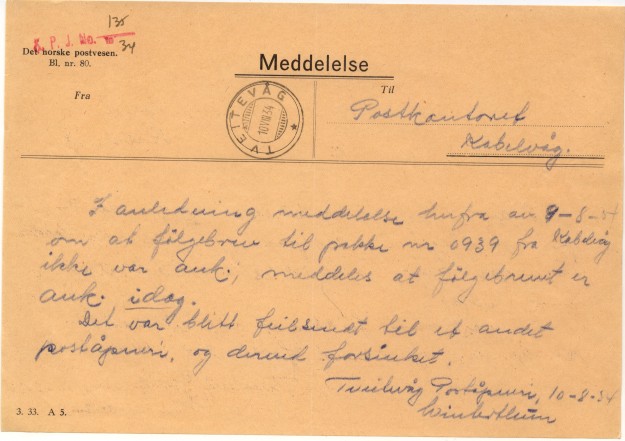 135
K. P. J. No. 34
Det norske postvesen.
Bl. nr. 80.
Meddelelse
Fra
Til
TVEITEVÅG
10 VIII 34
Postkontoret
Kabelvåg.
I anledning meddelelse herfra av 9-8-34
om at følgebrev til pakke nr 0939 fra Kabelvåg
ikke var ank.; meddeles at følgebrevet er
ank. idag.
Det var blitt feilsendt til et andet
poståpneri, og derved forsinket.
Tveitevåg Poståpneri, 10-8-34
3. 33. A 5.